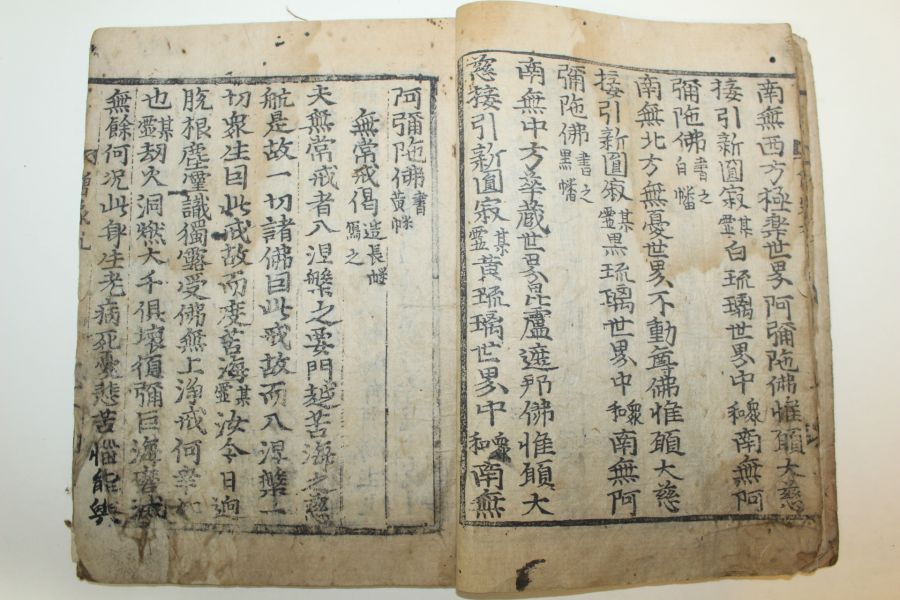 南無西方極楽世界阿彌陀佛惟願大慈
接引新圓寂某靈白琉璃世界中衆和南無阿
彌陀佛書之白幡
南無北方無憂世界不動尊佛惟願大慈
接引新圓寂某靈黒琉璃世界中衆和南無阿
彌陀佛書之黒幡
南無中方華蔵世界毘盧遮那佛惟願大
慈接引新圓寂某靈黄琉璃世界中衆和南無
阿彌陀佛書黄幡
無常戒偈造長幡寫之
夫無常戒者入涅槃之要門越苦海之慈
航是故一切諸佛因此戒故而入涅槃一
切衆生因此戒故而度苦海某靈汝今日逈
脫根塵靈識獨露受佛無上淨戒何幸如
也某靈劫火洞燃大千俱壞須彌巨海磨滅
無餘何況此身生老病死憂悲苦惱能與